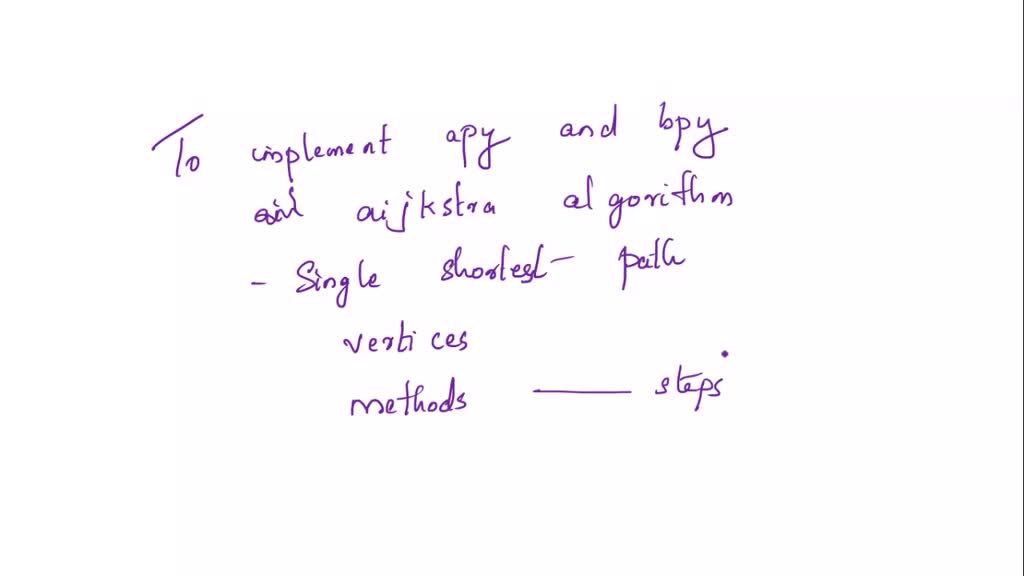 To implement apy and bpy
aijkstra algorithm
- Single shortest - path
vertices
methods —— steps